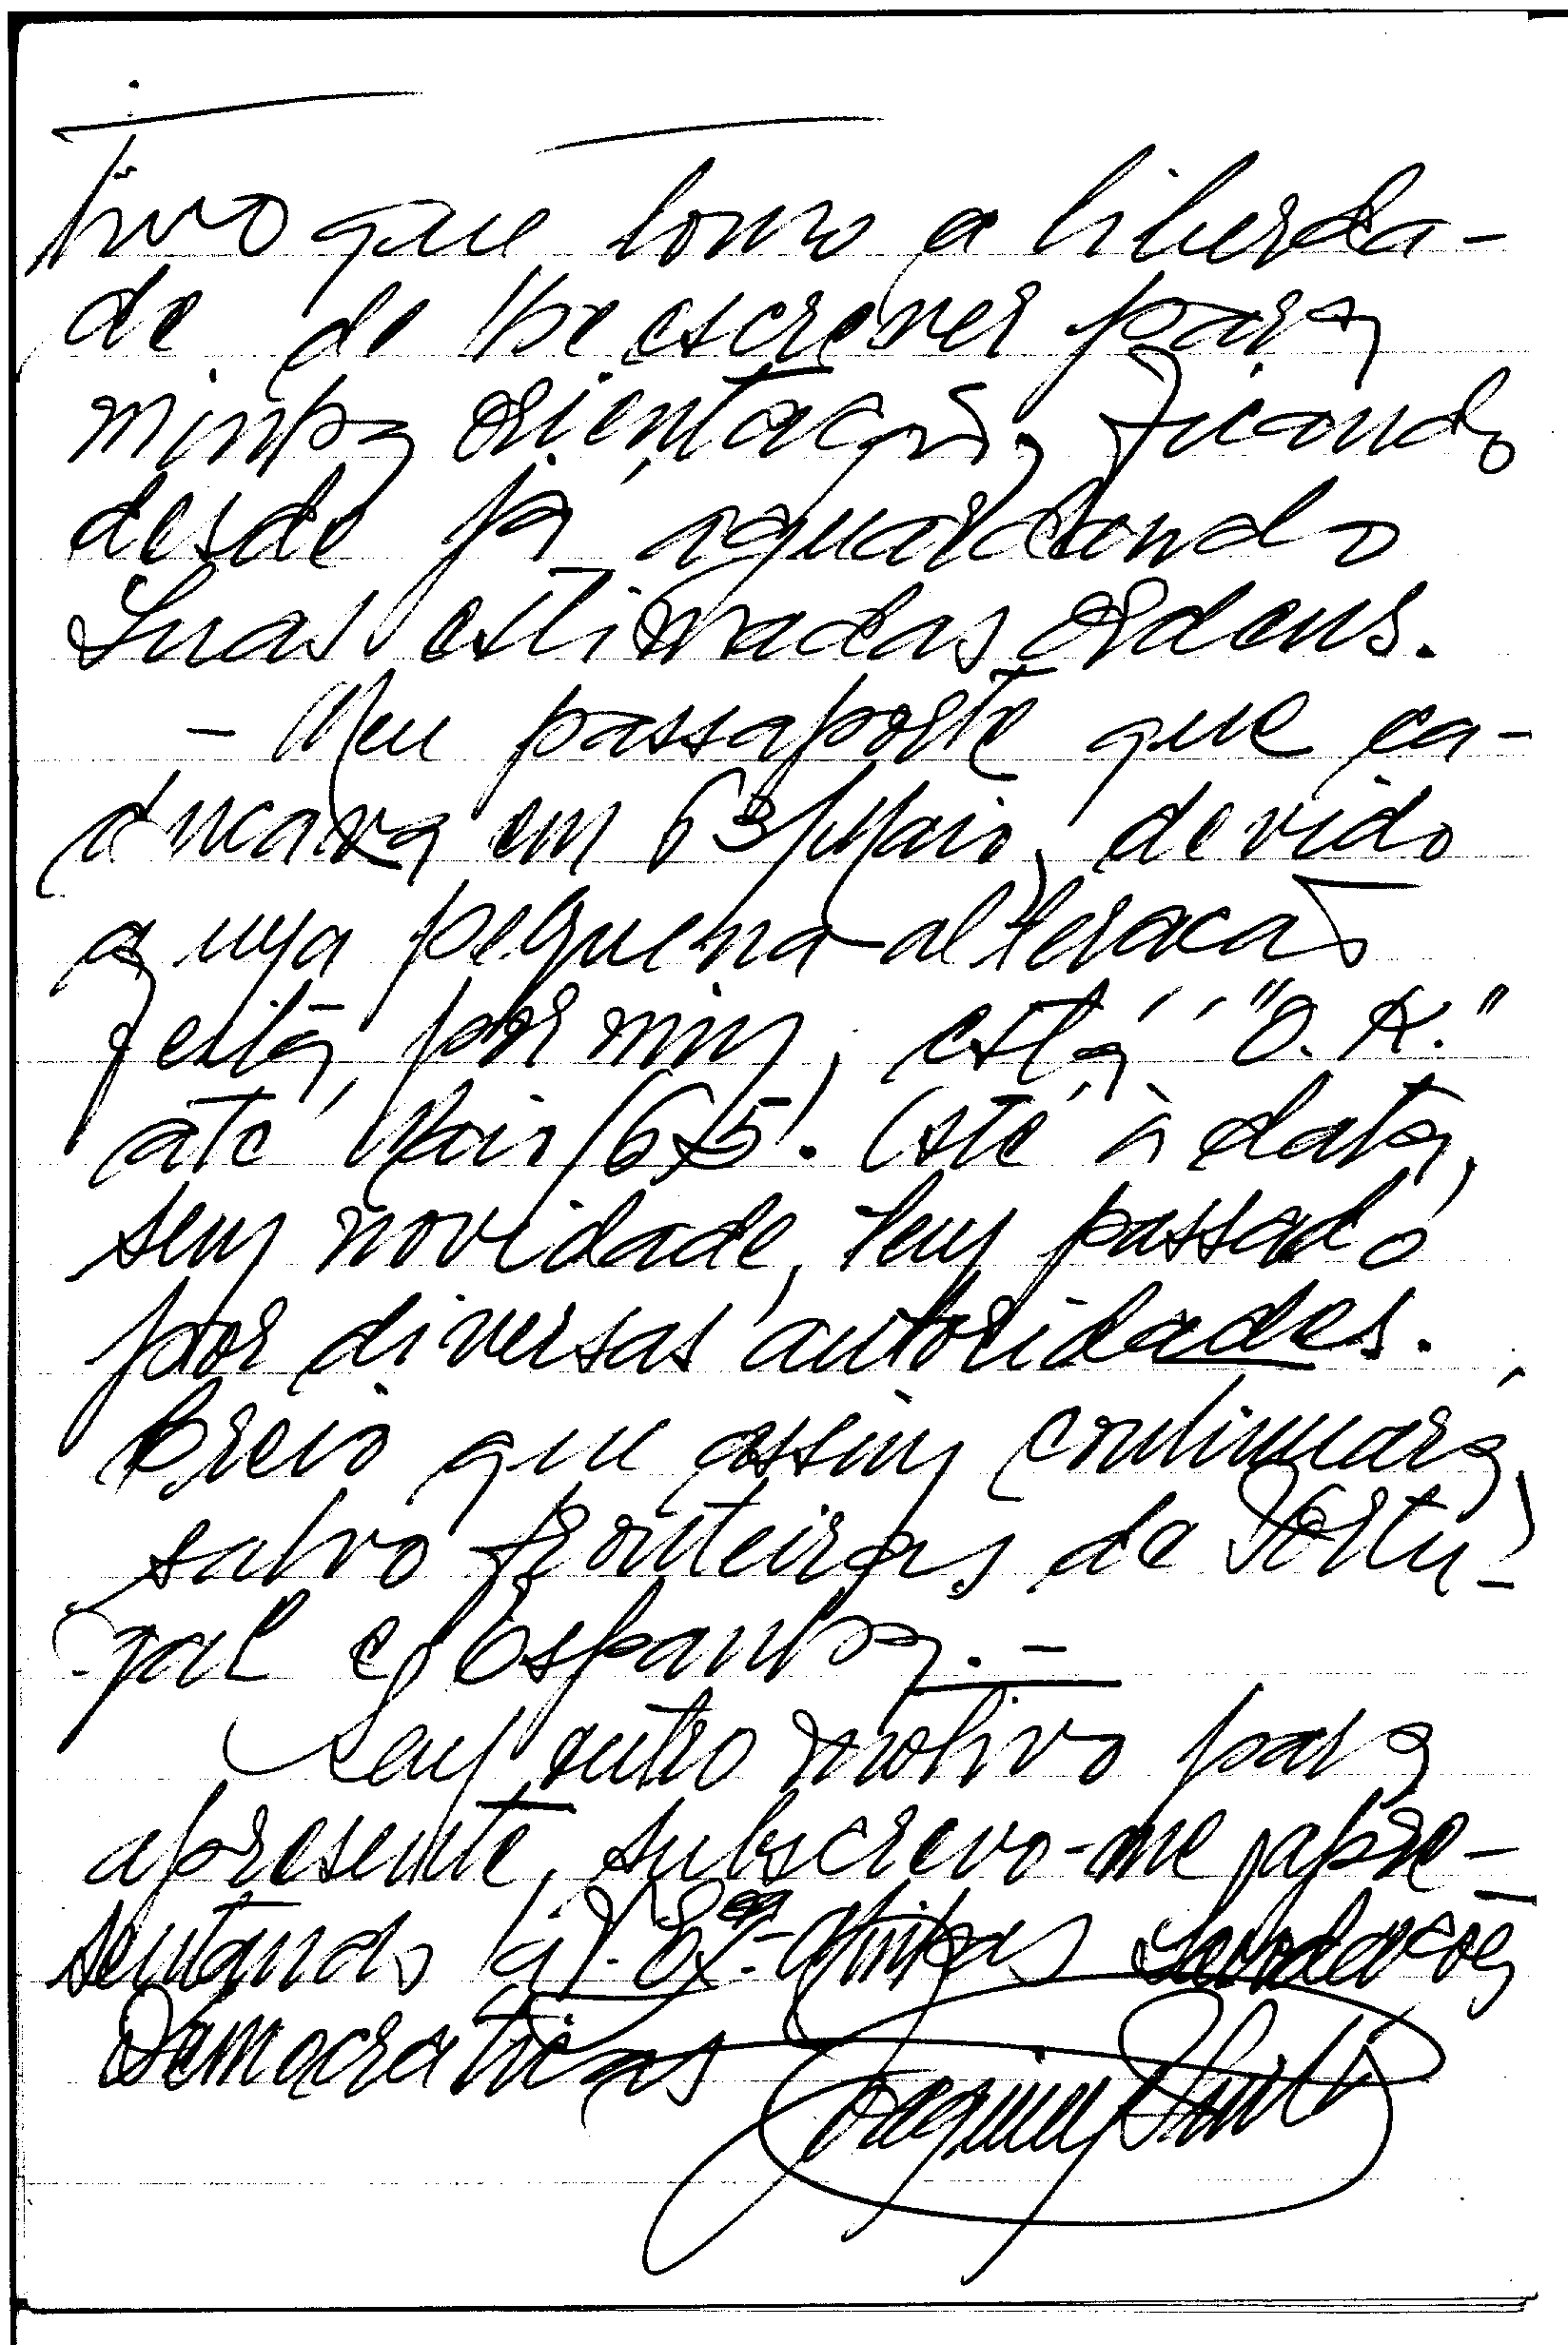 tivo que tomo a liberda-
de de lhe escrever para
minha orientação, ficando
desde já aguardando
Suas estimadas ordens.
- Meu passaporte que ca-
ducava em 63/Maio, devido
a uma pequena alteração
feita por mim, está "O.K."
até Maio/65. Até à data,
sem novidade, tem passado
por diversas autoridades.
Creio que assim continuará,
salvo fronteiras de Portu-
gal e Espanha. -
Sem outro motivo para
a presente, subscrevo-me apre-
sentando à V. Exª. minhas Saudações
Democráticas Joaquim